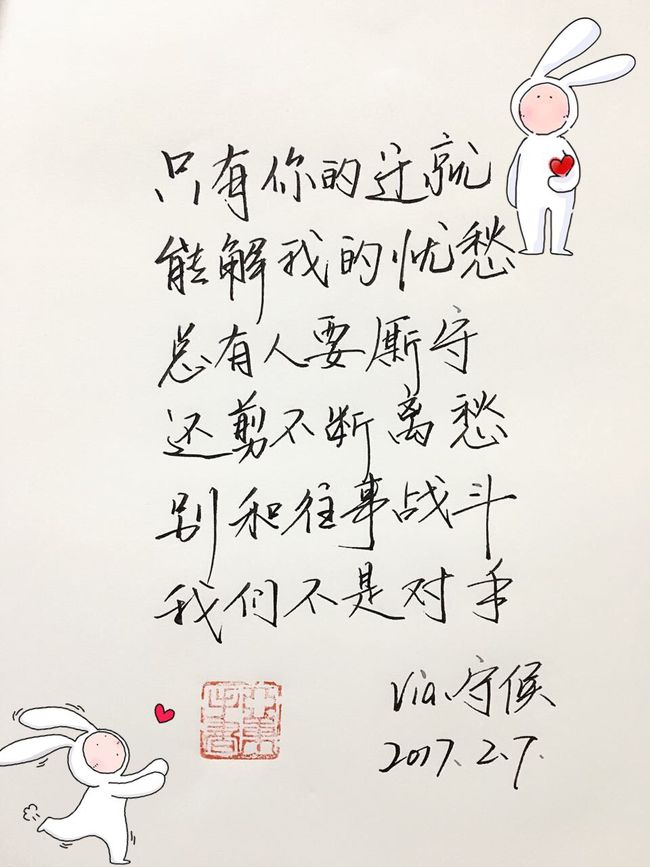 只有你的迁就
能解我的忧愁
总有人要厮守
还剪不断离愁
别和往事战斗
我们不是对手
via.守候
2017.2.7.